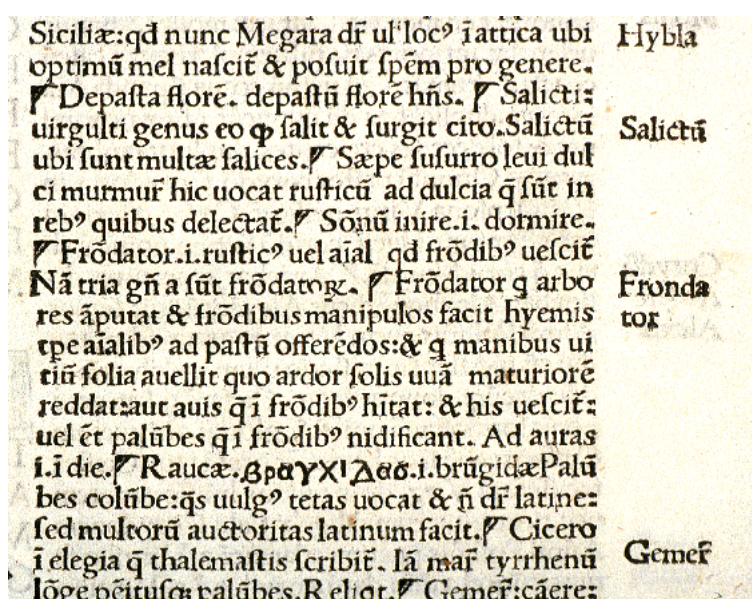 Siciliæ:qđ nunc Megara dr̄ ul' locꝰ ī attica ubi
Hybla
optimū mel naſcit̄ & poſuit ſpēm pro genere.
Depaſta florē. depaſtū florē hn̄s. Salicti:
uirgulti genus eo ꝙ ſalit & ſurgit cito.Salictū
Salictū
ubi ſunt multæ ſalices. Sæpe ſuſurro leui dul
ci murmur̄ hic uocat ruſticū ad dulcia q̄ ſūt in
rebꝰ quibus delectat̄. Sōnū inire.i. dormire.
Frōdator.i.ruſticꝰ uel aīal qđ frōdibꝰ ueſcit̄
Nā tria gn̄a ſūt frōdatoꝝ. Frōdator q arbo
Fronda
res āputat & frōdibus manipulos facit hyemis
tor
tpe aīalibꝰ ad paſtū offerēdos:& q manibus ui
tiū folia auellit quo ardor ſolis uuā maturiorē
reddat:aut auis q̄ ī frōdibꝰ hītat: & his ueſcit̄:
uel ēt palūbes q̄ ī frōdibꝰ nidificant. Ad auras
i.ī die. Raucæ.βραγχιΔασ.i.brūgidæ Palū
bes colūbe:q̄s uulgꝰ tetas uocat & n̄ dr̄ latine:
ſed multorū auctoritas latinum facit. Cicero
ī elegia q̄ thalemaſtis ſcribit̄. Iā mar̄ tyrrhenū
Gemer̄
lōge pēituſqꝫ palūbes.Reliqt. Gemer̄:cāere: